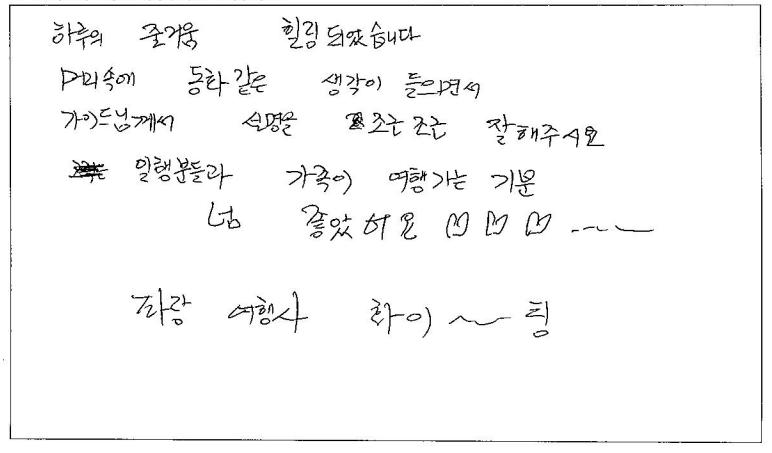 하루의 즐거움 힐링 되었습니다
머리속에 동화 같은 생각이 들으면서
가이드님께서 설명을 조근조근 잘해주시요
일행분들과 가족이 여행가는 기분
넘 좋았어요 ♡ ♡ ♡ ----
파랑 여행사 화이~팅